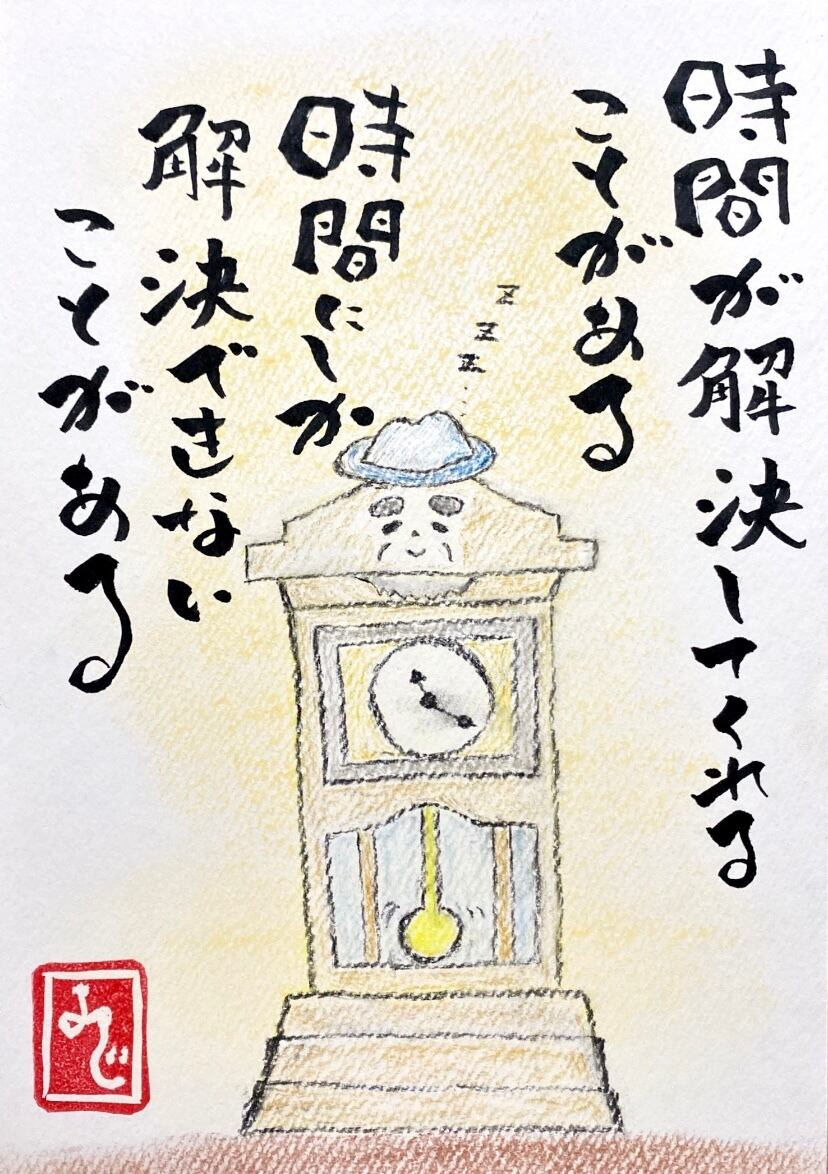 時間が解決してくれる
ことがある
時間にしか
解決できない
ことがある
z
z
z